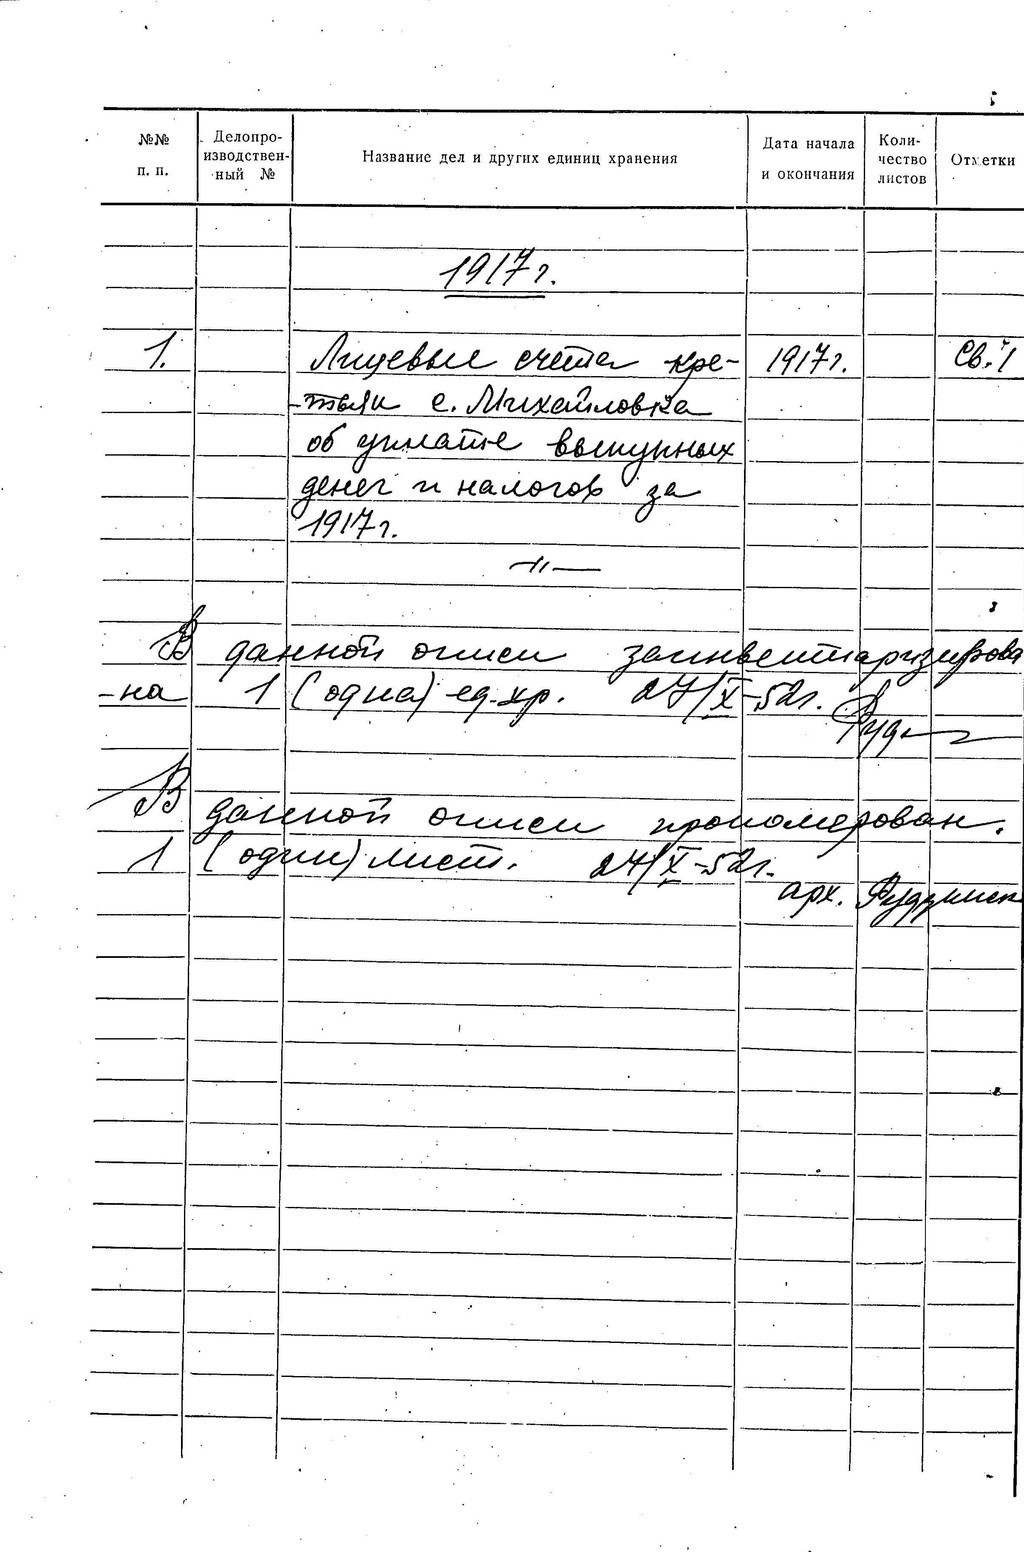 №№ п. п. Делопроизводствен-ный № Название дел и других единиц хранения Дата начала и окончания Коли-чество листов Отметки
1917 г.
1. Лицевые счета кре- 1917 г. Св. 1
-тьян с. Михайловка
об уплате выкупных
денег и налогов за
1917 г.
—"—
В данной описи заинвентаризирова
-на 1 (одна) ед. хр. 27/X-52г.
В данной описи прономерован.
1 (один) лист. 27/X-52г.
арх.